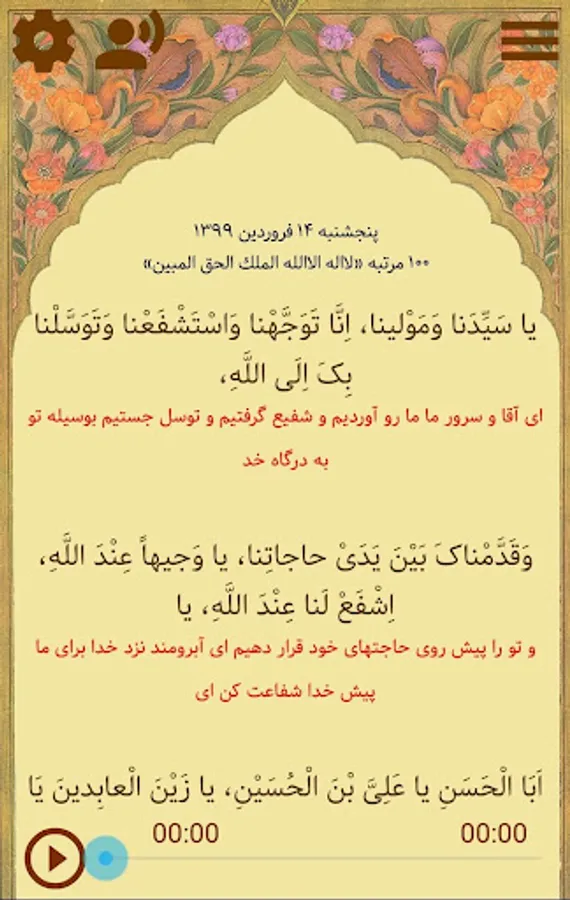 پنجشنبه ۱۴ فروردین ۱۳۹۹
۱۰۰ مرتبه «لااله الاالله الملك الحق المبين»
يا سَيِّدَنا وَمَوْلينا، اِنَّا تَوَجَّهْنا وَاسْتَشْفَعْنا وَتَوَسَّلْنا
بِکَ اِلَى اللَّهِ،
ای آقا و سرور ما ما رو آوردیم و شفیع گرفتیم و توسل جستیم بوسیله تو
به درگاه خد
وَقَدَّمْناکَ بَيْنَ يَدَىْ حاجاتِنا، يا وَجيهاً عِنْدَ اللَّهِ،
اِشْفَعْ لَنا عِنْدَ اللَّهِ، يا
و تو را پیش روی حاجتهای خود قرار دهیم ای آبرومند نزد خدا برای ما
پیش خدا شفاعت کن ای
اَبَا الْحَسَنِ يا عَلِىَّ بْنَ الْحُسَيْنِ، يا زَيْنَ الْعابِدينَ يَا
00:00 00:00